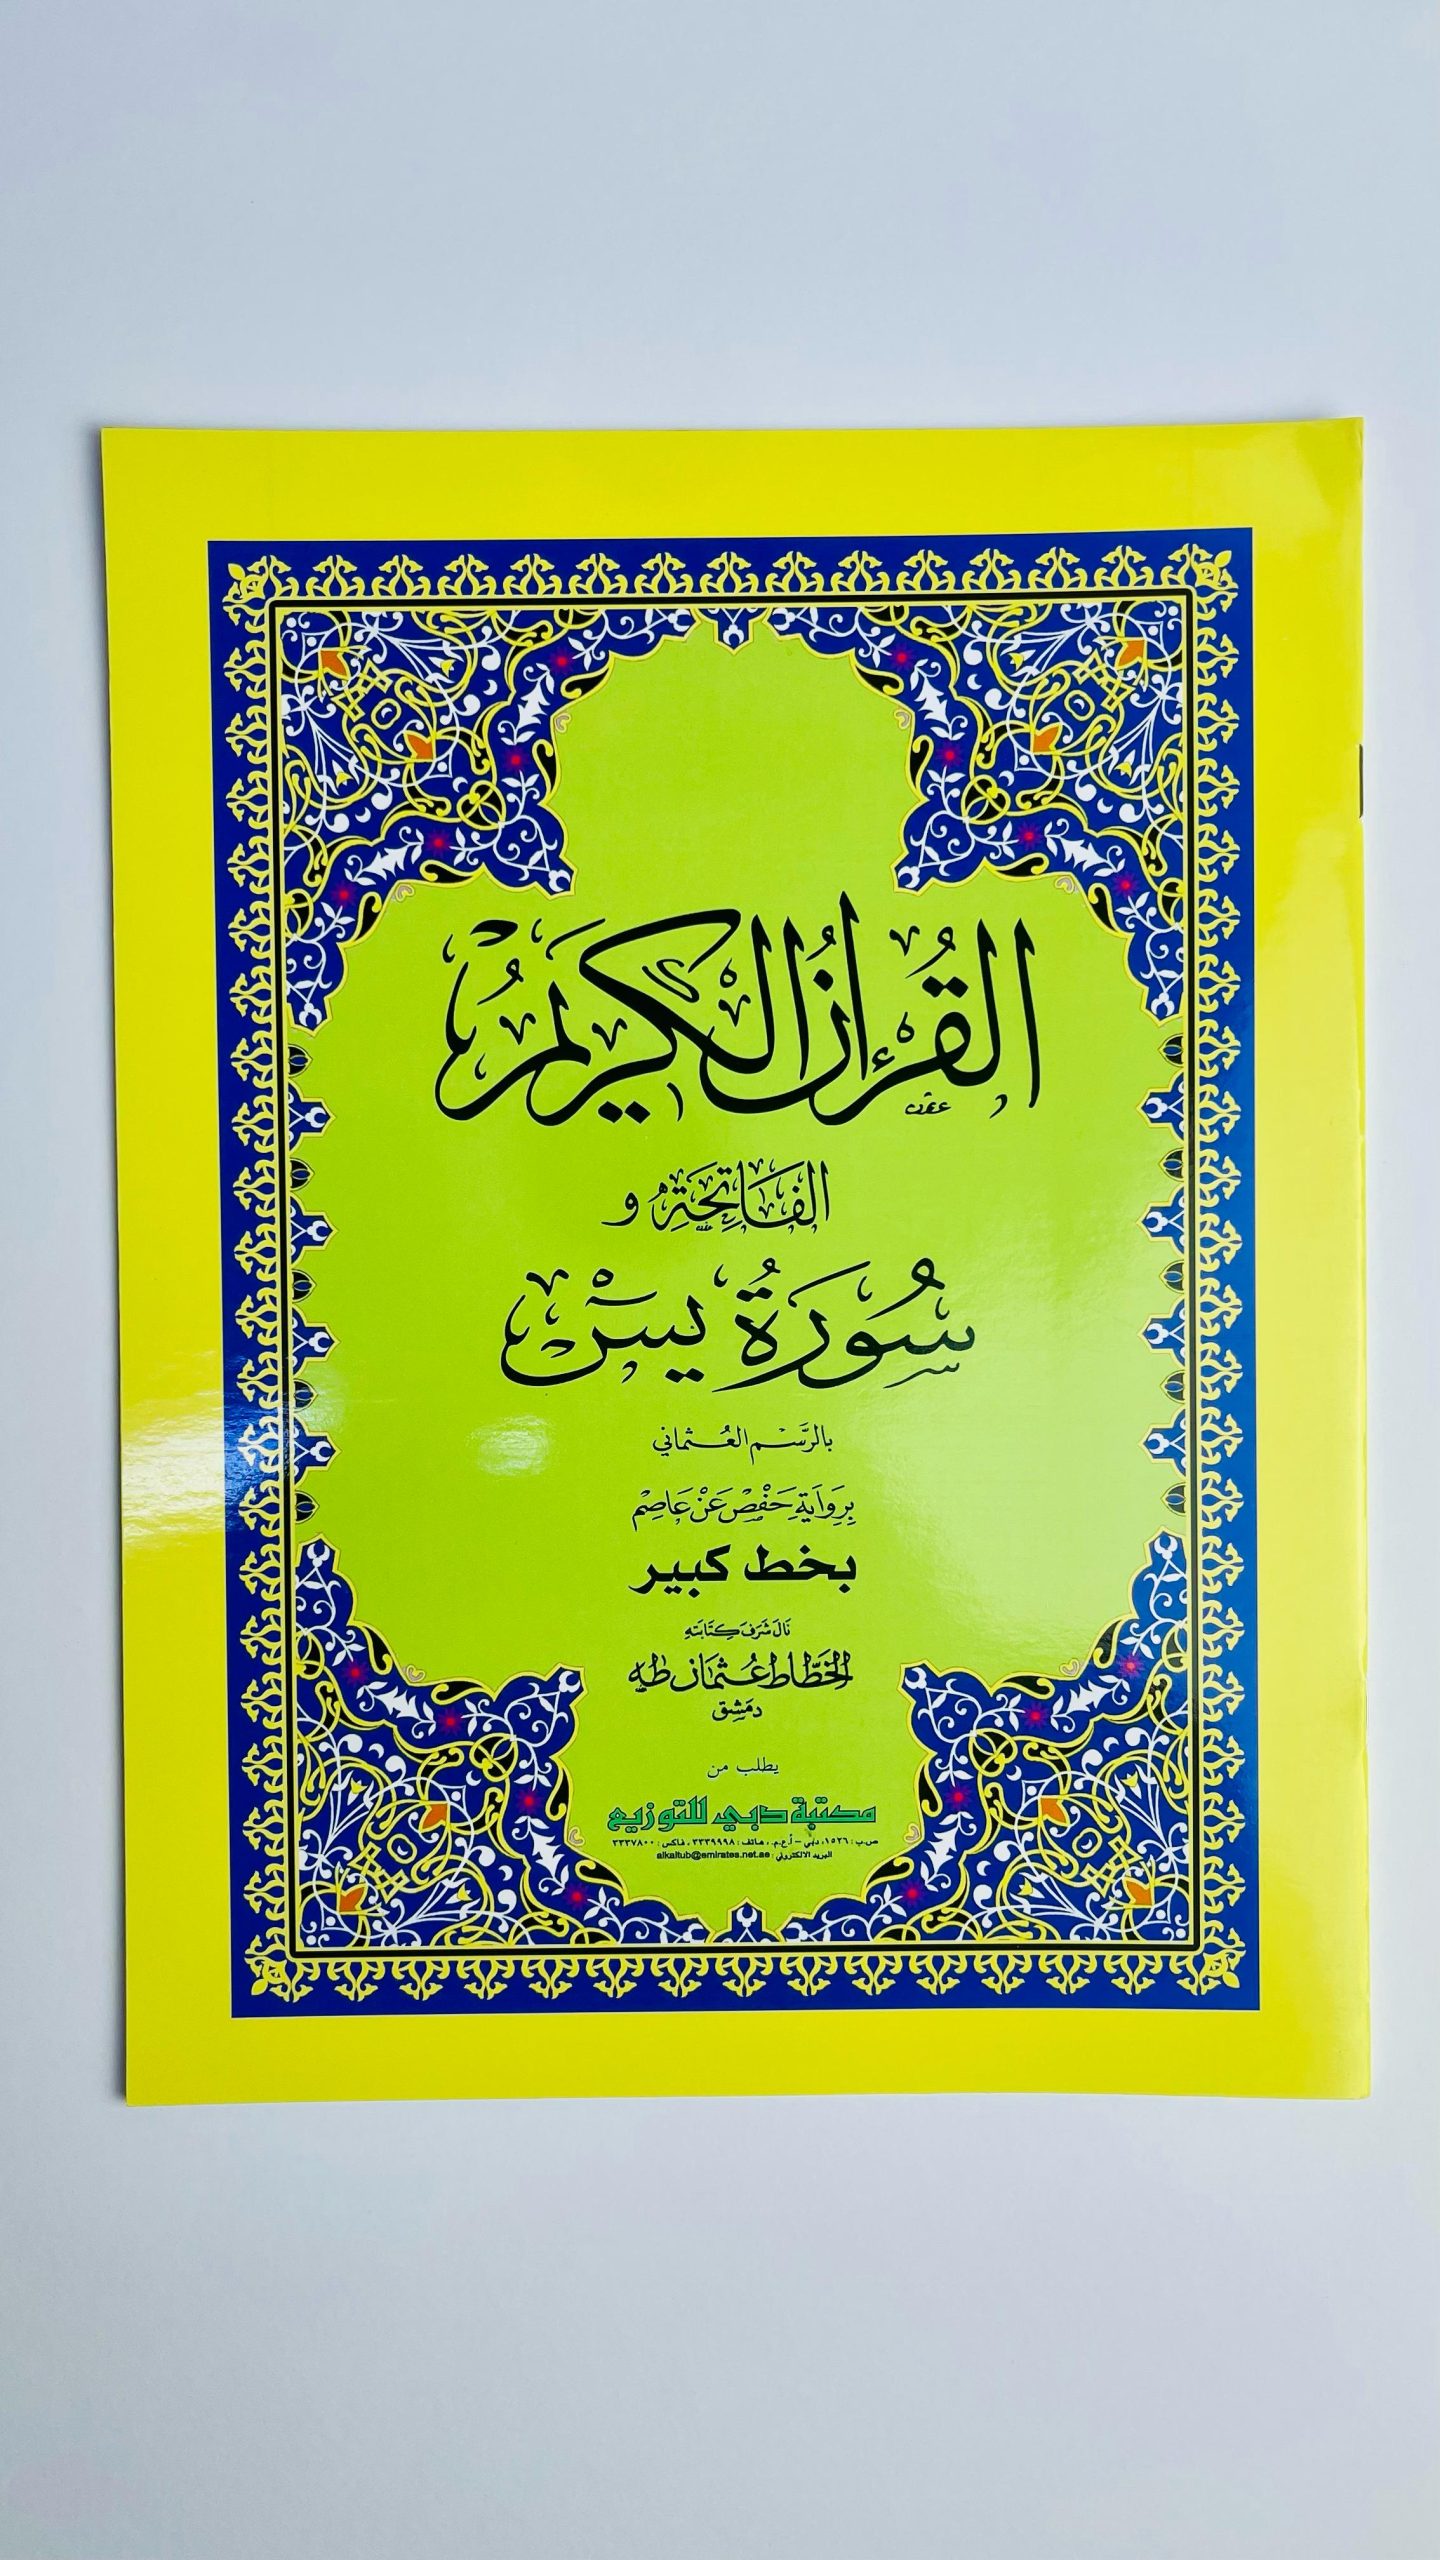 القُرْءَانُ الكَرِيمُ
الفَاتِحَةِ و
سُورَةُ يسٓ
بالرَّسْمِ العُثماني
بِرِوَايَةِ حَفْصٍ عَنْ عَاصِمٍ
بخط كبير
نَالَ شَرَفَ كِتَابَتِهِ
الخَطَّاط عُثمَان طٰه
دمَشق
يطلب من
مكتبة دبي للتوزيع
ص.ب : ١٥٢٦، دبي - أ.ع.م. ، هاتف : ٣٣٣٩٩٩٨ ، فاكس : ٣٣٣٧٨٠٠
البريد الالكتروني : alkaltub@emirates.net.ae